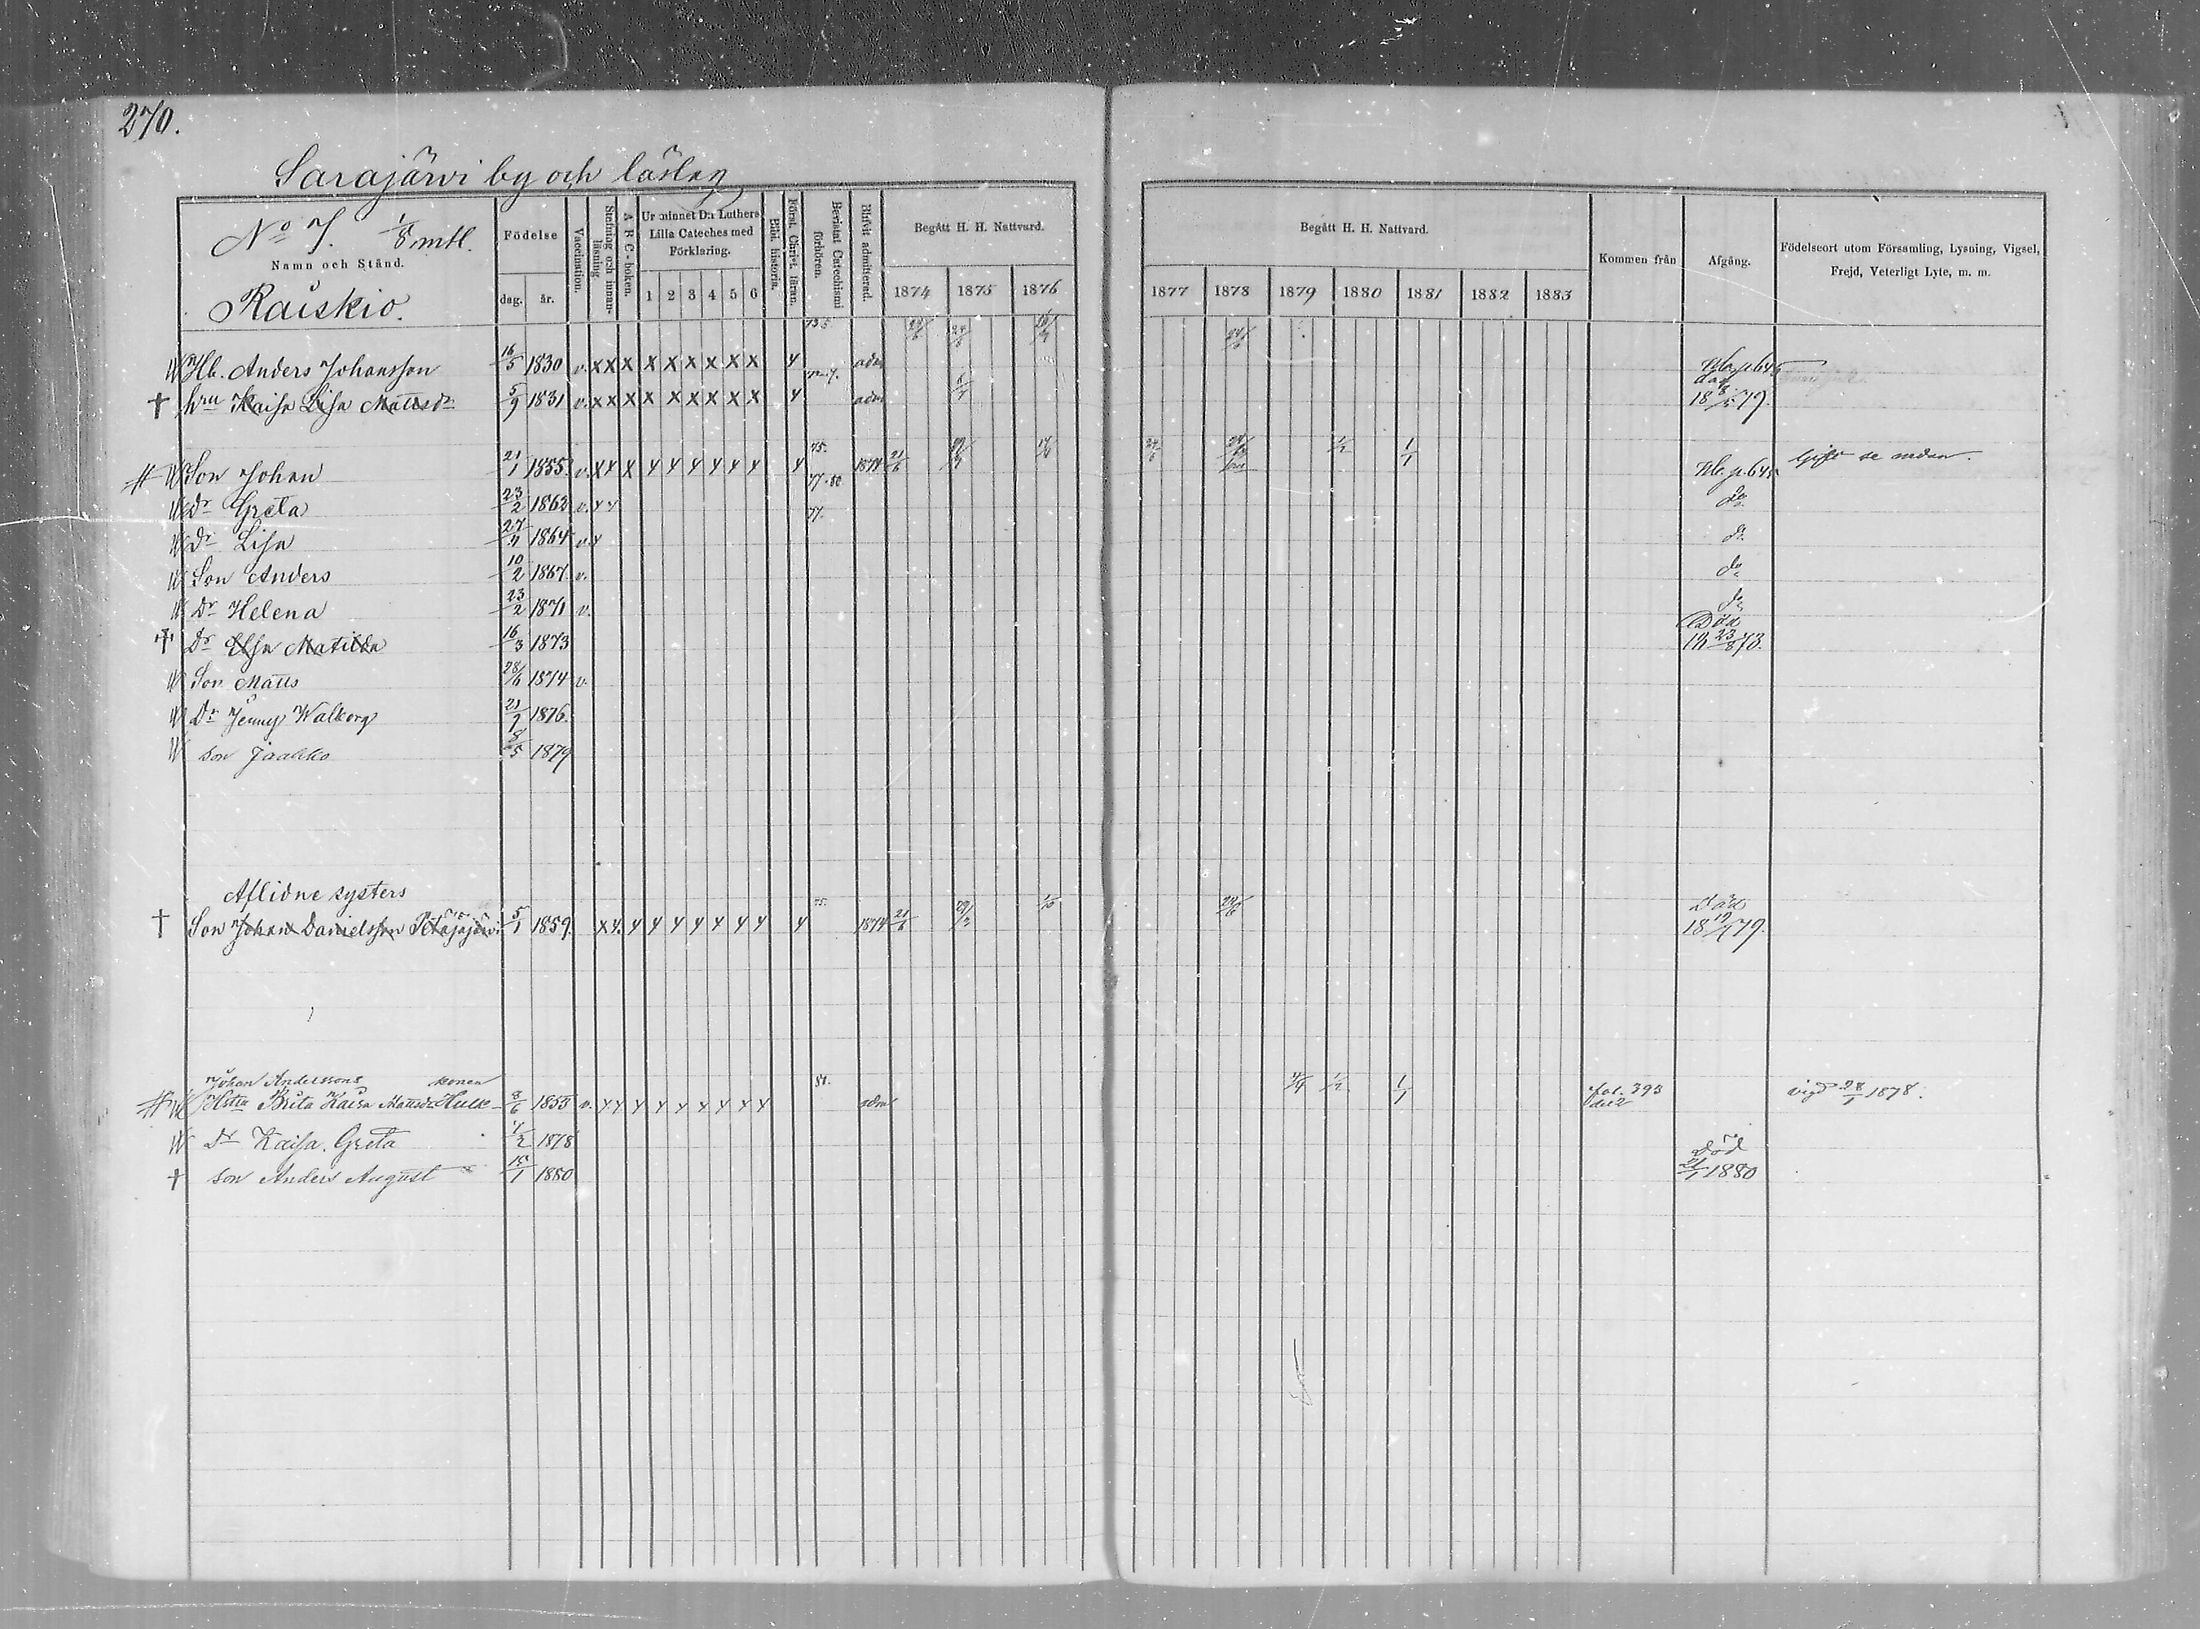 270.
Sarajärvi by och läslag
No 7. 1/8 mtl.
Namn och Stånd.
Raiskio.
Födelse
dag. år.
Vaccination.
Stafning och innanläsning.
A B C-boken.
Ur minnet D:r Luthers Lilla Cateches med Förklaring.
1 2 3 4 5 6
Bibl. historia.
Först. Christ. läran.
Bevistat Catechismi förhören.
Blifvit admitterad.
Begått H. H. Nattvard.
1874 1875 1876
Begått H. H. Nattvard.
1877 1878 1879 1880 1881 1882 1883
Kommen från
Afgång.
Födelseort utom Församling, Lysning, Vigsel, Frejd, Veterligt Lyte, m. m.
Hb. Anders Johansson 16/5 1830 v. x x x x x x x x x 4 adm
hru Kaisa Lisa Mattsdr 5/9 1831 v. x x x x x x x x x 4 adm 18 8/5 79.
Son Johan 21/1 1855 v. x 4 x 4 4 4 4 4 4 4 75. 1874 21/6 24/6 1/2 1/1 Gift se nedan.
Dr Greta 23/2 1862 v. 77. 80 do
Dr Lisa 27/4 1864 v. 77. do
Son Anders 10/2 1867 v. do
Dr Helena 23/2 1871 v. do
Dr Elsa Matilda 16/3 1873 Död 18 23/8 73.
Son Matts 28/6 1874 v.
Dr Jenny Walborg 21/7 1876.
son Jaakko 8/5 1879
Aflidne systers
Son Johan Danielsson Petäjäjärvi 5/1 1859 x 4 4 4 4 4 4 4 4 4 75. 1874 21/6 Död 18 19/1 79.
Johan Anderssons konen
Brita Kaisa Mattsdr 8/6 1855 v. adm 1/2 1/1 fol. 393 del 2 vigd 28/1 1878.
Dr Kaisa Greta 4/2 1878
son Anders August 15/1 1880 Död 21/1 1880